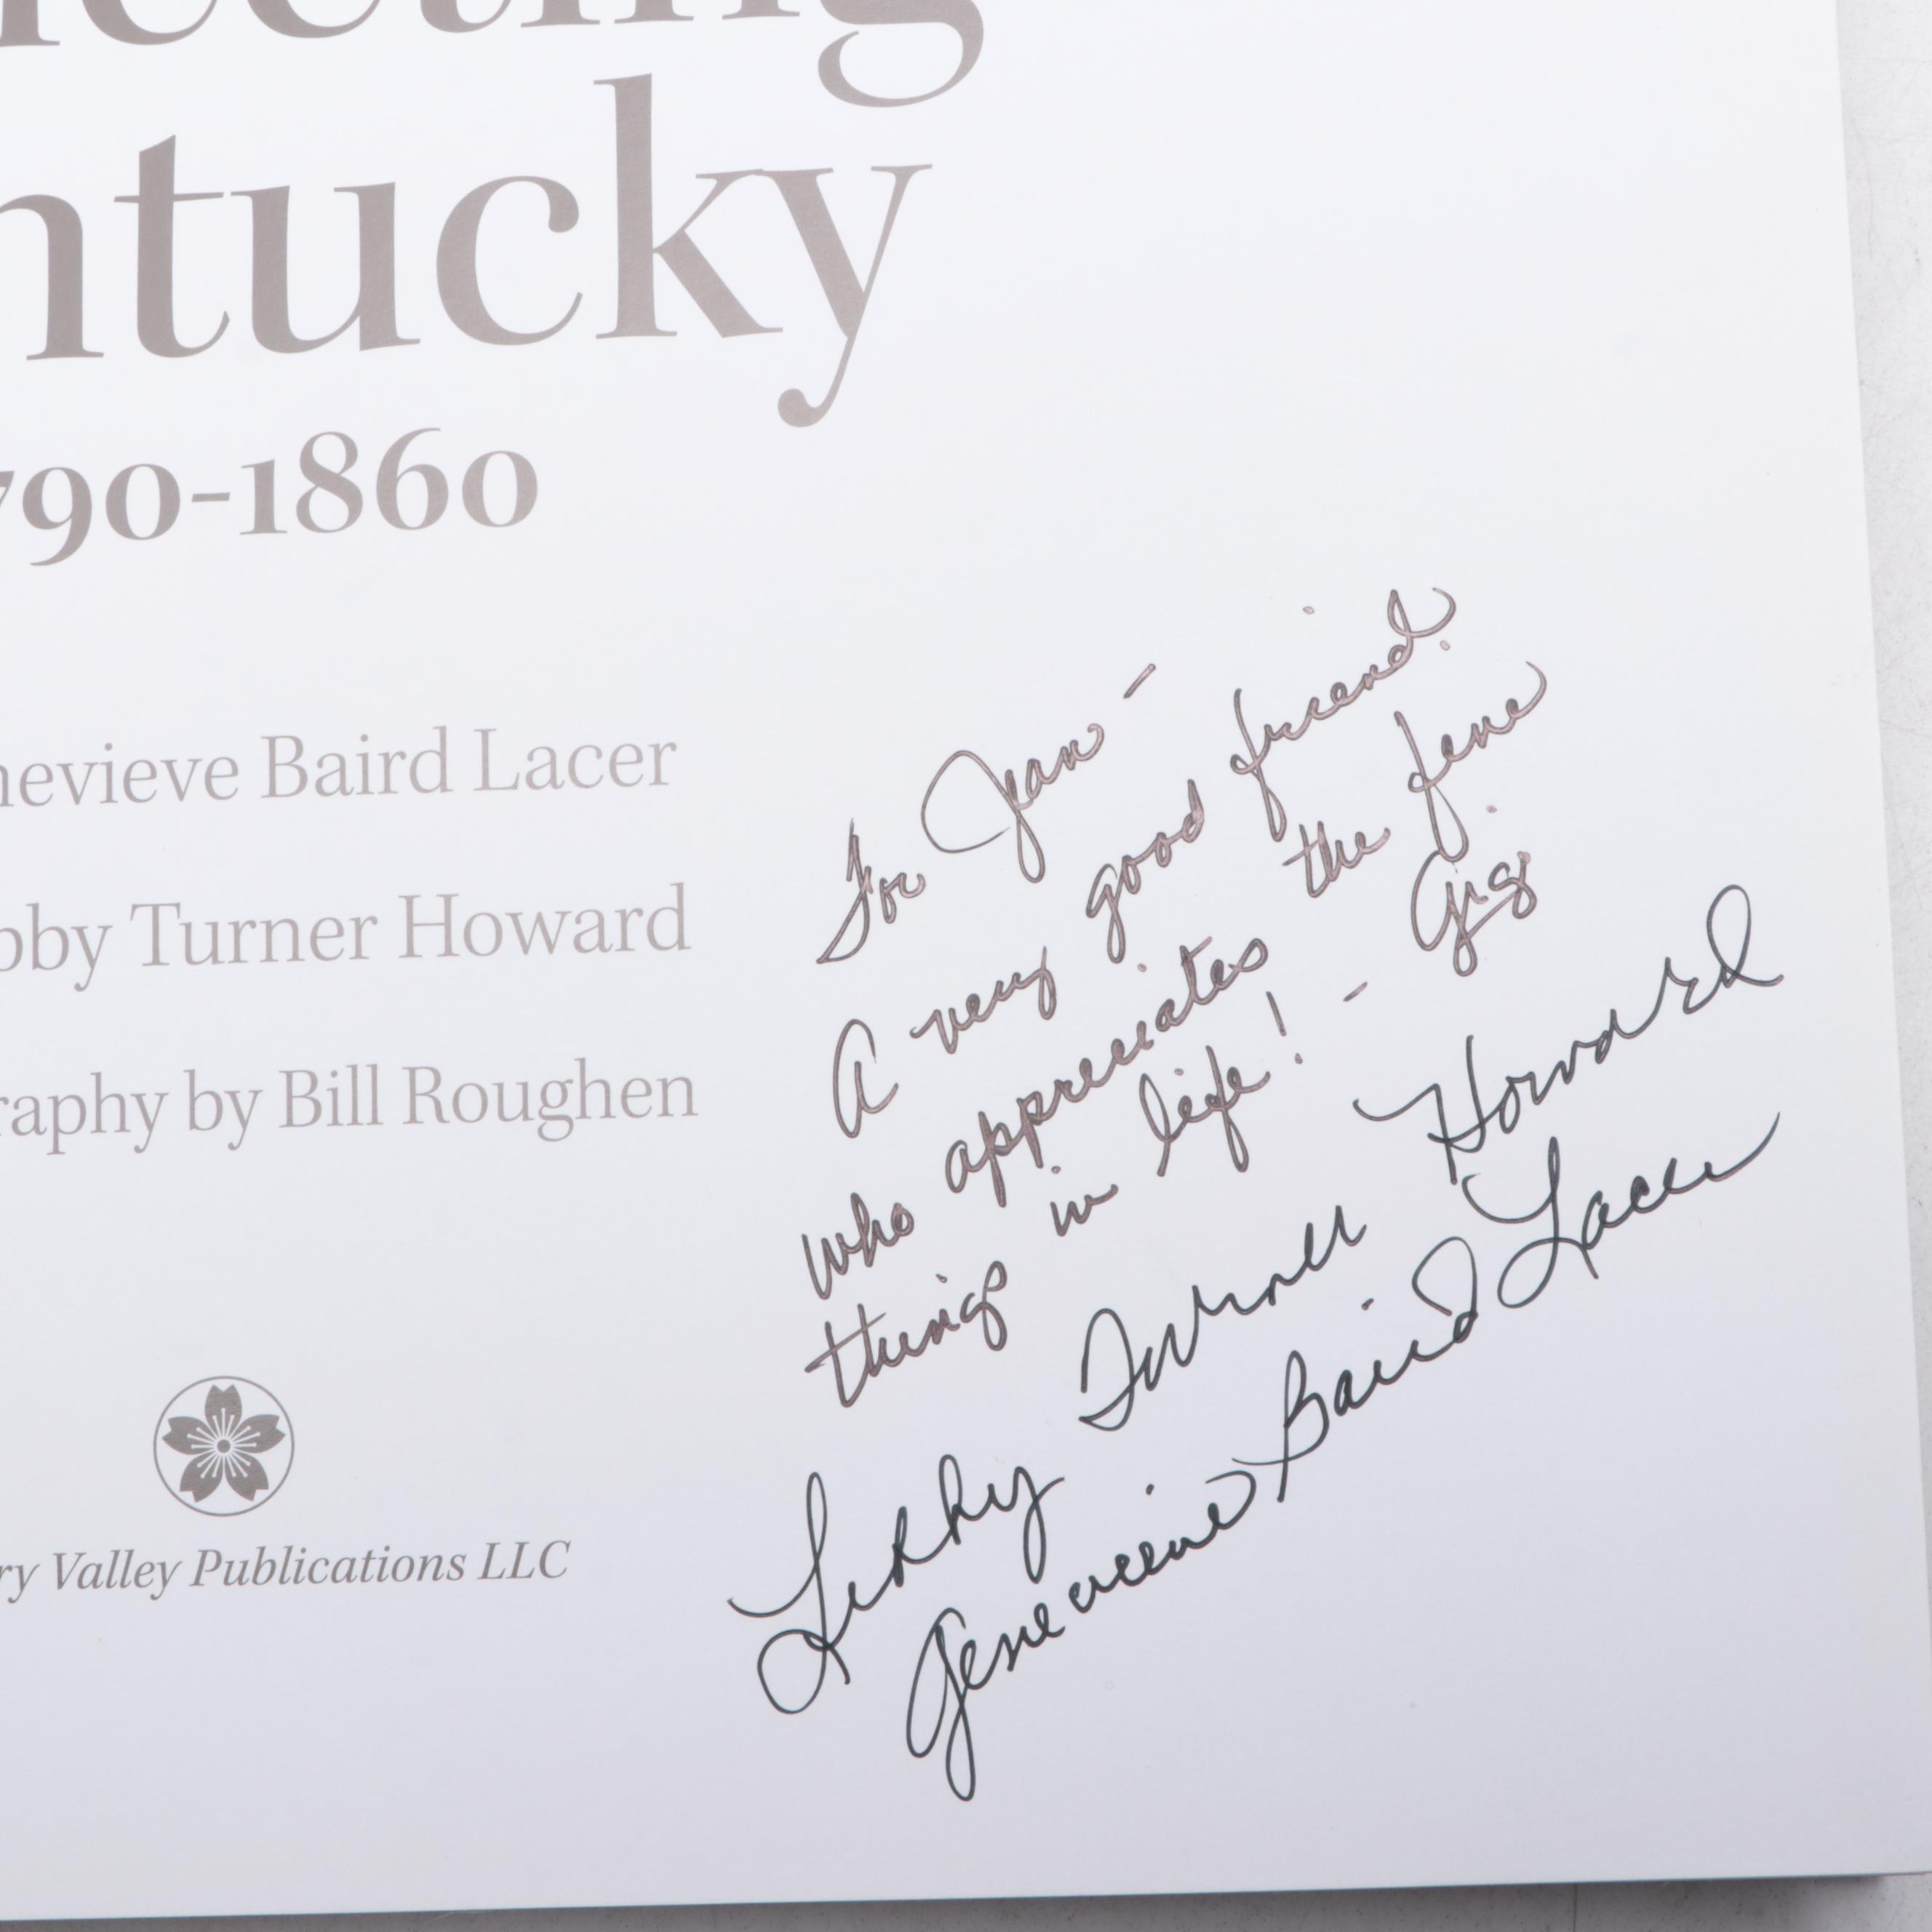 ecting
ntucky
790-1860
nevieve Baird Lacer
bby Turner Howard
raphy by Bill Roughen
ry Valley Publications LLC
For Jean -
A very good friend.
who appreciates the fine
things in life! - Gigi
Libby Turner Howard
Genevieve Baird Lacer